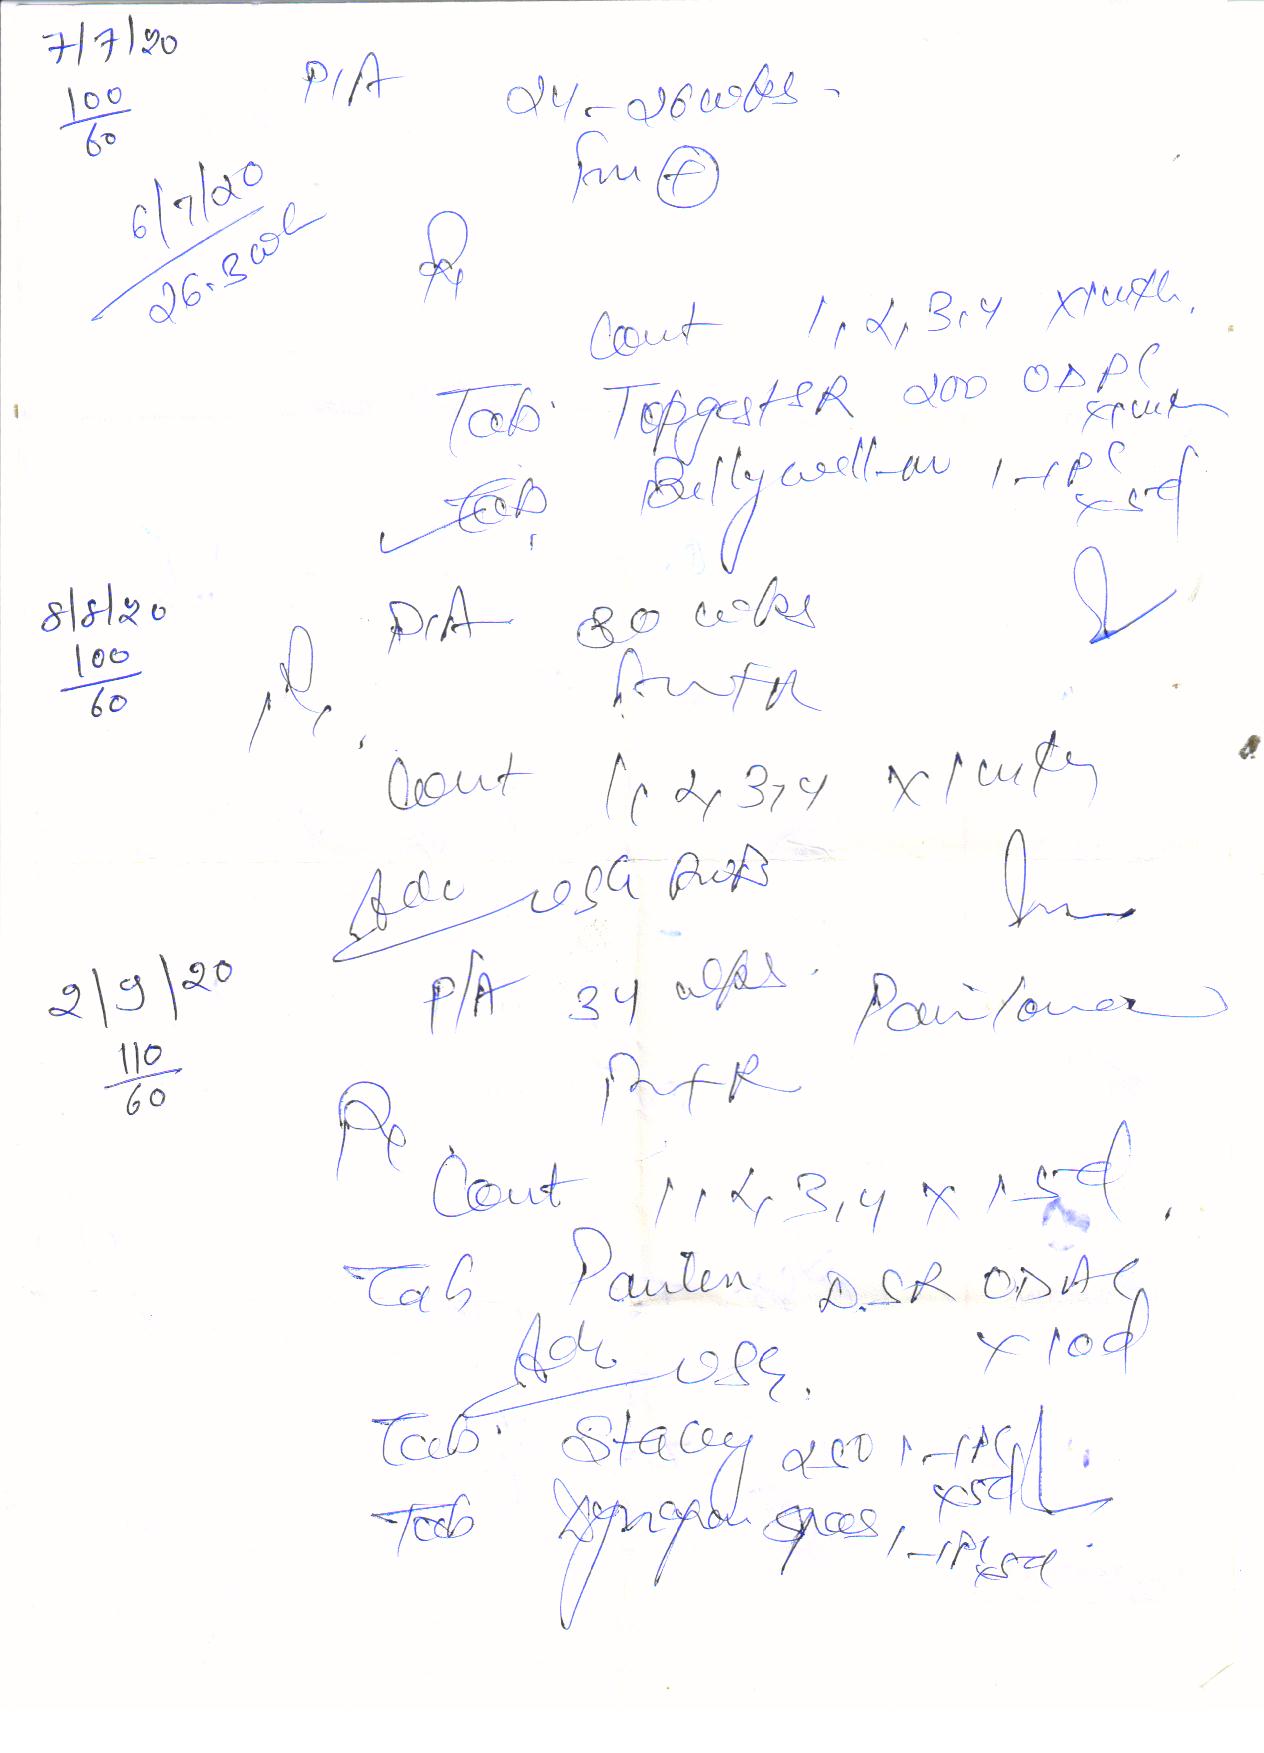 7/7/20
100
60
P/A 24-26 wks
FM (+)
6/7/20
26.3 wk
Rx
Cont 1, 2, 3, 4 x 1 mth.
Tab. Topgest SR 200 OD PC
x 1 mth
Tab 1-1 PC
x 5d
8/8/20
100
60
P/A 30 wks
Rx
Cont 1, 2, 3, 4 x 1 mth
Adv USG
2/9/20
110
60
P/A 34 wks.
Pain lower
Rx
Cont 1, 2, 3, 4 x 15d
Tab D.SR OD AC
x 10d
Adv USG.
Tab. 250 1-1 PC
x 5d
Tab spas 1-1 PC
x 5d